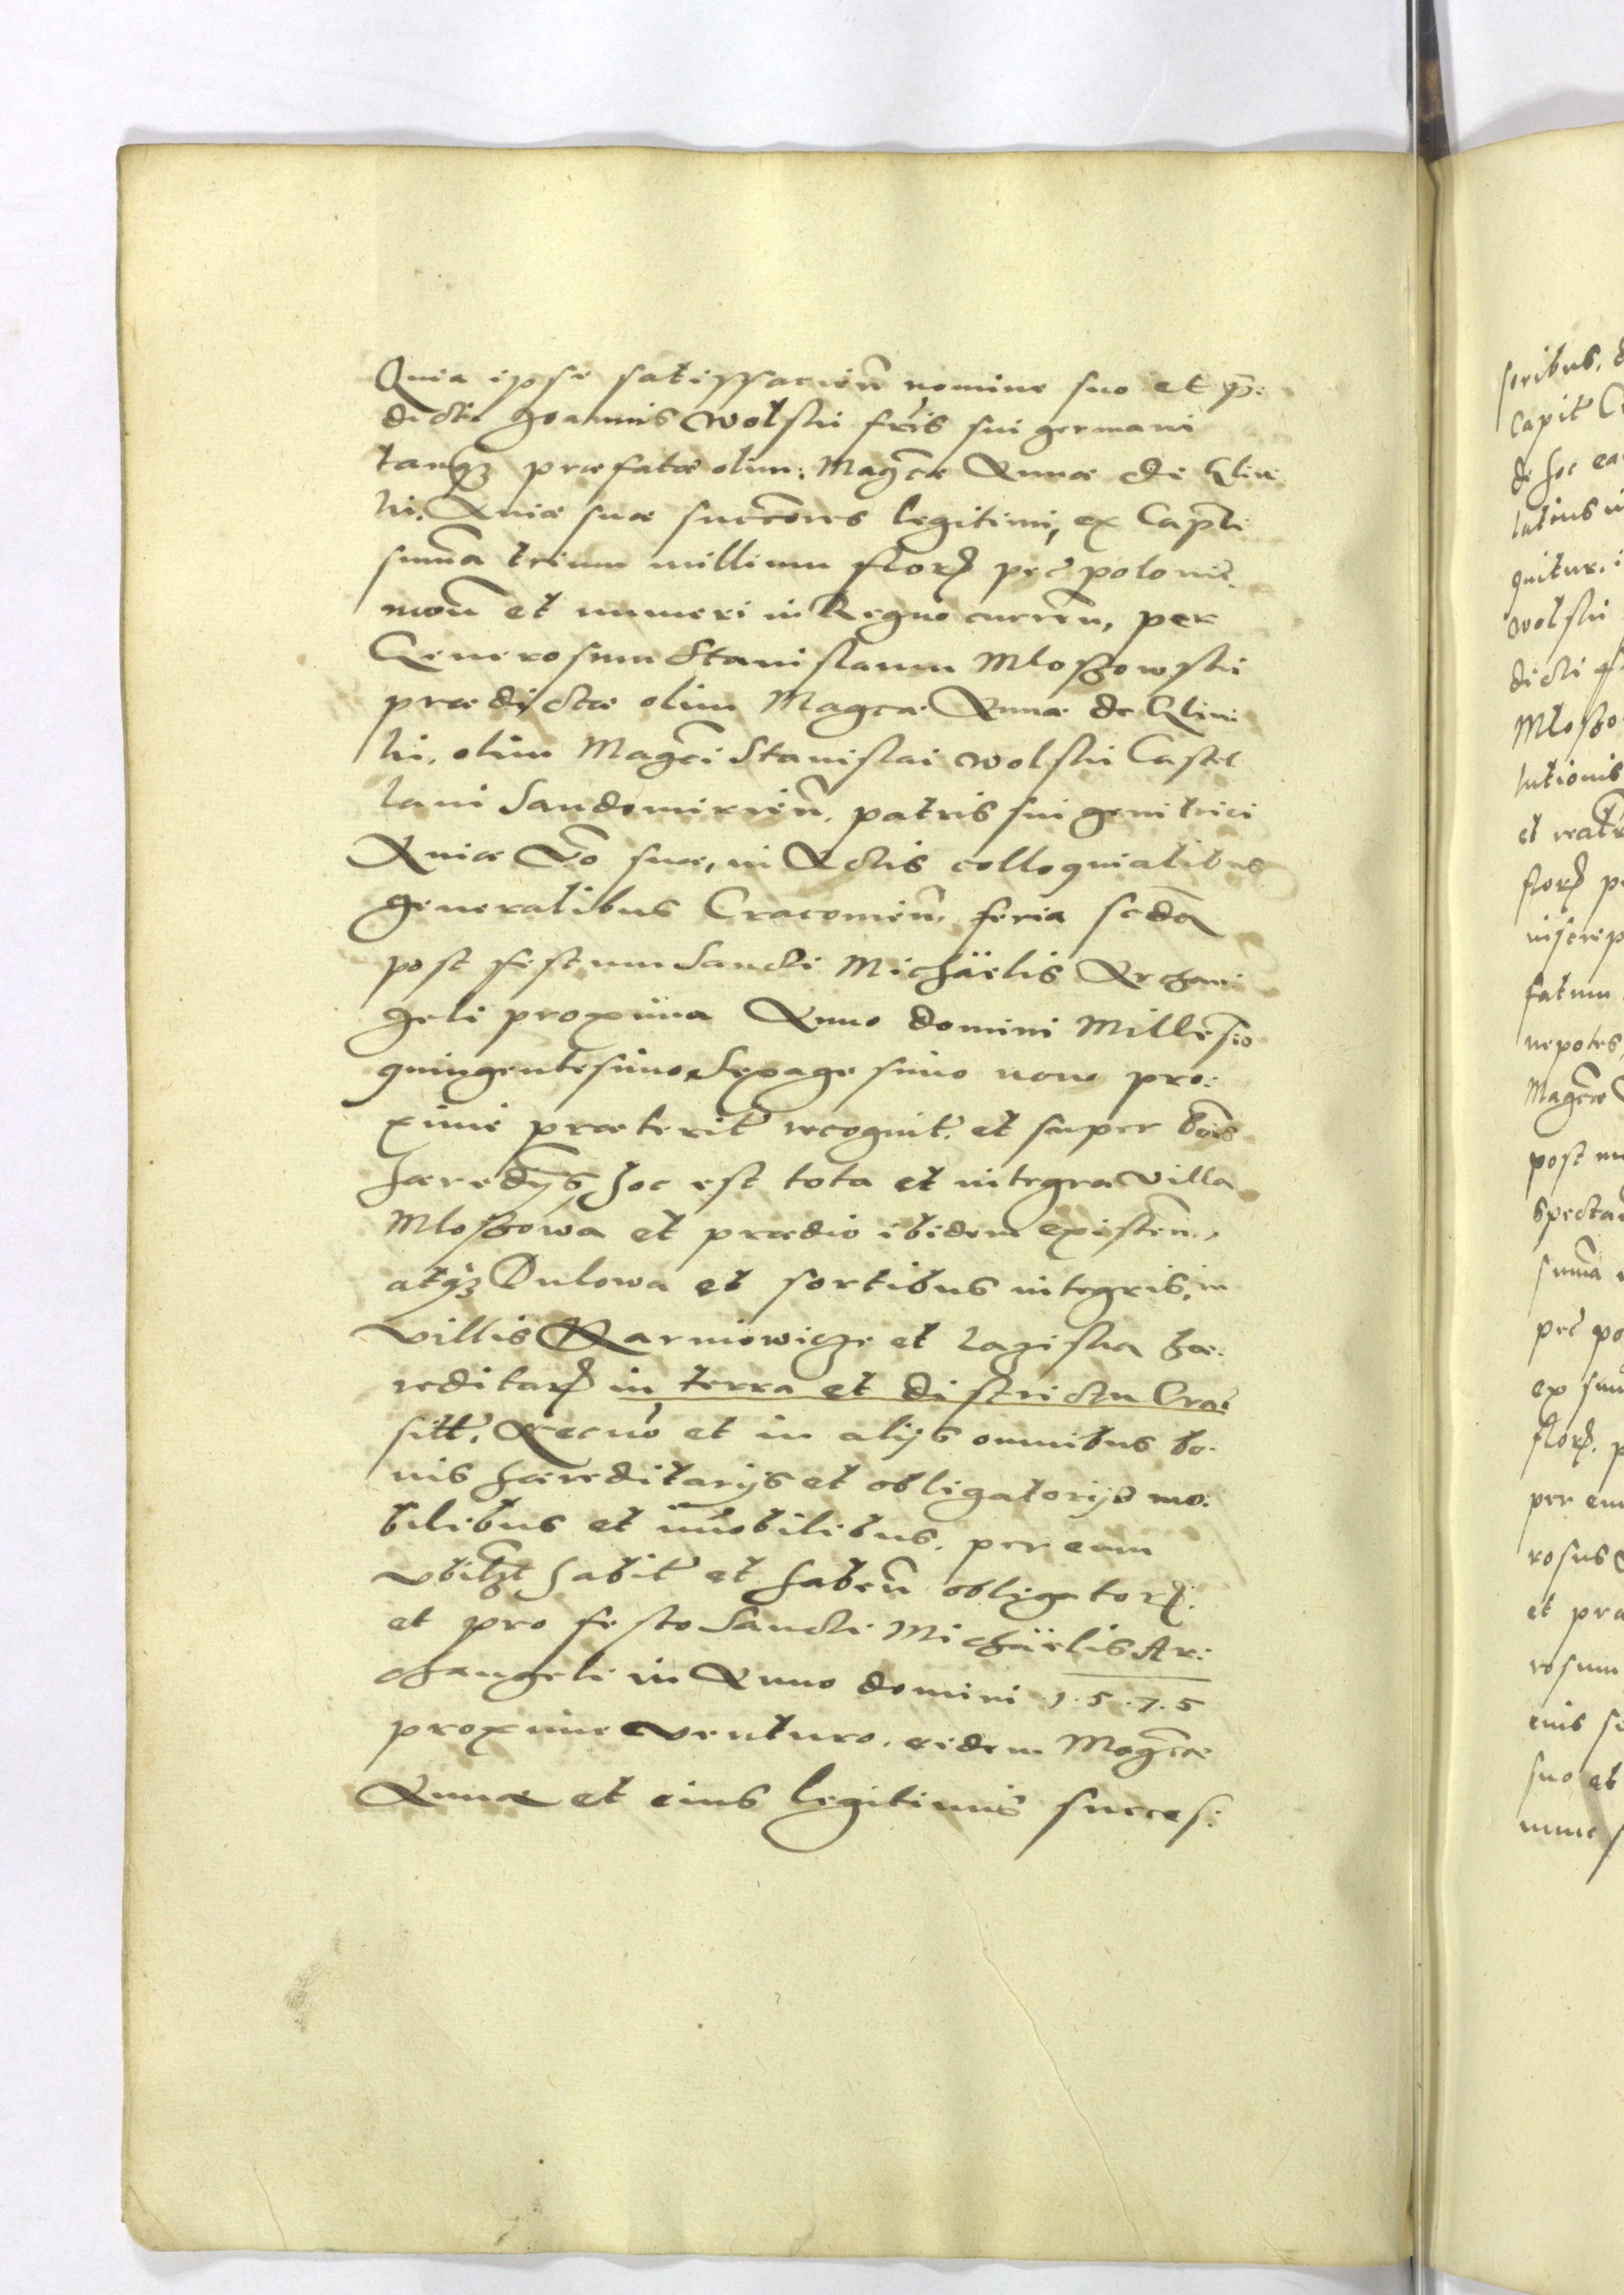 Quia ipse satisfacieñ nomine suo et p̃:
dicti Joannis Wolski fr̃is sui germani
tanq̃ꝫ præfatæ olim: Mag̃cæ Annæ de Glini
ki. Aviæ suæ succ̃ores legitimi, ex Cap̃li
sum̃a trium millium floꝝ pec̃ poloni͂:
mon̄ et numeri in Regno curreñ, per
Generosum Stanislaum Mloszowski
prædictæ olim Magcæ Annæ de Glini
ki, olim Mag̃ci Stanislai Wolski Castel
lani Sandomirieñ. patris sui genitrici
Aviæ v̄o suæ, in Actis colloquialibus
generalibus Cracovieñ. feria scda
post festum Sancti Michäelis Archani
geli proxima Anno domini Millẽsio
quingentesimo Sexagesimo nono pro:
xime præterit̃ recognit̃. et super bõis
hæredijs hoc est tota et integra villa
Mloszowa et prædio ibidem existeñ,
atq̃ꝫ Dulowa et sortibus integris, in
villis Karniowicze et Laziska hæ:
reditaꝝ in terra et districtu Crac̃
sitt̃. Necnõ et in alijs omnibus bo:
nis hæreditarijs et obligatorijs mo:
bilibus et im̃obilibus. per eum
vbilꝫt habit̃ et habeñ obligatoꝝ:
et pro festo Sancti Michäelis Ar:
changeli in Anno domini 1.5.7.5
proxime venturo. eidem Mag̃cæ
Annæ et eius legitimis succes:
soribus,
Capit̃
de hoc ea
latius
quitur. i
Wolski
dicti
Mloszo
lutionis
et
floꝝ p
inscrip
fatum
nepotes
Mag̃cæ
post m
specta
sum̃a
pec̃ po
ex sum
floꝝ. p
per eum
rosus
et præ
rosum
eius s
suo et
nunc